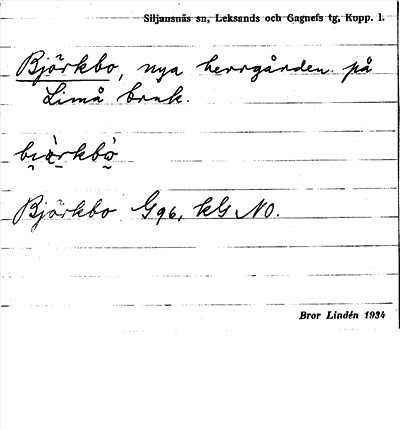 Siljansnäs sn, Leksands och Gagnefs tg, Kopp. l.
Björkbo, nya herrgården på
Limå bruk.
Björkbo G96, kG NO.
Bror Lindén 1934